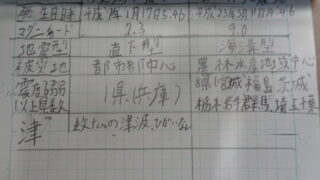 発生日時 平成7年1月17日5:46 平成23年3月11日14:46
マグニチュード 7.3 9.0
地震型 直下型 海溝型
被災地 都市部中心 農林水産地域中心
震度6弱以上県数 1県(兵庫) 8県(宮城 福島 茨城 栃木 岩手 群馬 埼玉 千葉
津 数十cmの津波、ひがいなし